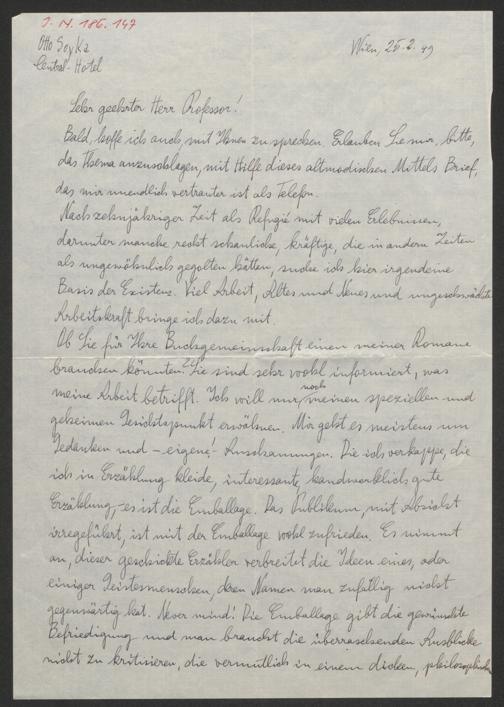 J. N. 186.147
Otto Soyka
Central-Hotel
Wien, 25.2.49
Sehr geehrter Herr Professor!
Bald, hoffe ich auch, mit Ihnen zu sprechen. Erlauben Sie mir, bitte,
das Thema anzuschlagen, mit Hilfe dieses altmodischen Mittels Brief,
das mir unendlich vertrauter ist als Telefon.
Nach zehnjähriger Zeit als Refugié mit vielen Erlebnissen,
darunter manche recht schauliche, kräftige, die in andern Zeiten
als ungewöhnlich gegolten hätten, suche ich hier irgendeine
Basis der Existenz. Viel Arbeit, Altes und Neues und ungeschwächte
Arbeitskraft bringe ich dazu mit.
Ob Sie für Ihre Buchgemeinschaft einen meiner Romane
brauchen könnten? Sie sind sehr wohl informiert, was
meine Arbeit betrifft. Ich will nur noch meinen speziellen und
geheimen Gesichtspunkt erwähnen. Mir geht es meistens um
Gedanken und – eigene! – Anschauungen. Die ich verkappe, die
ich in Erzählung kleide, interessante, handwerklich gute
Erzählung, – es ist die Emballage. Das Publikum, mit Absicht
irregeführt, ist mit der Emballage wohl zufrieden. Es nimmt
an, dieser geschickte Erzähler verbreitet die Ideen eines, oder
einiger Geistesmenschen, deren Namen man zufällig nicht
gegenwärtig hat. Never mind! Die Emballage gibt die gewünschte
Befriedigung und man braucht die überraschenden Ausblicke
nicht zu kritisieren, die vermutlich in einem dicken, philosophischen